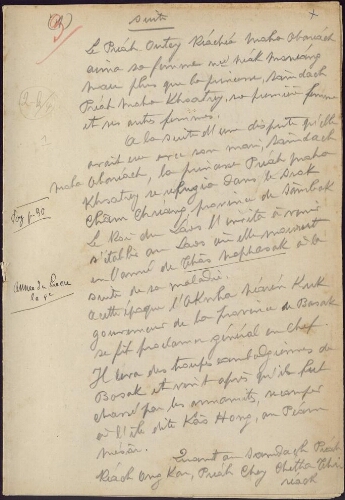 Suite
Le Préah Outey Réachéa Maha Obaréach
aima sa femme Néak Moneang
Nau plus que la princesse, Sâmdach
Préah Maha Khsatrey, sa première femme
et ses autres femmes.
A la suite d'une dispute qu'elle
avait eue avec son mari, Sâmdach
Maha Obaréach, la princesse Préah Maha
Khsatrey se réfugia dans le Srok
province de Sâmbok
Le Roi du Laos l'invita à venir
s'établir au Laos où elle mourut
en l'année de Thâs Nophasak à la
suite de sa maladie.
A cette époque l'Oknha Narin Kuk
gouverneur de la province de Basak
se fit proclamer général en Chef
Il leva des troupes cambodgiennes de
Basak et voit après qu'ils fut
chassé par les annamites,
à l'île dite Kâs Hong, au Péam
Quant au Sâmdach Préah
Réach Ang Kan, Préah Chey Chettha Thi
reach
Voy p. 90
Année du Lièvre